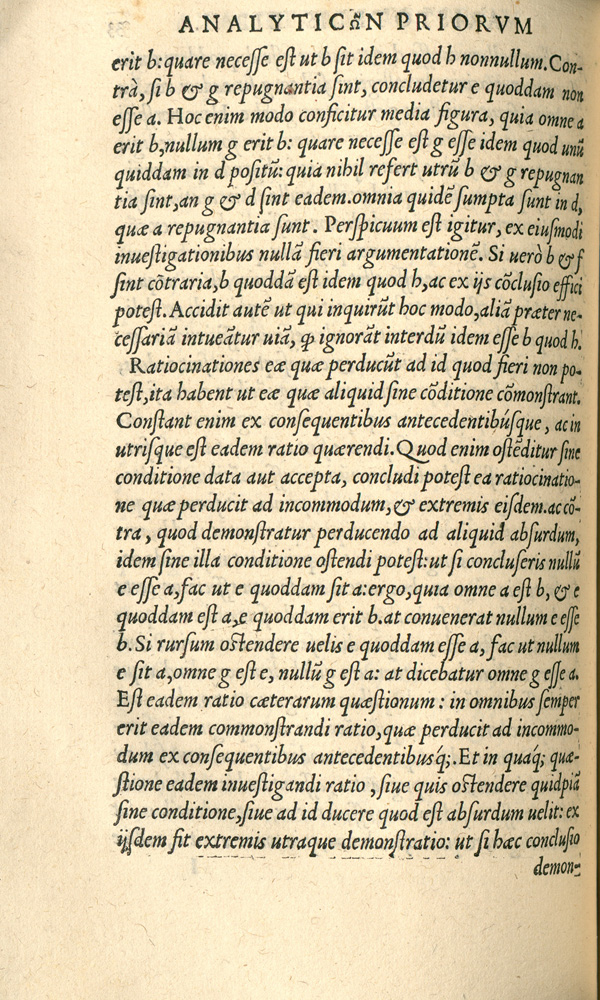 ANALYTICῶN PRIORVM
erit b: quare necesse est ut b sit idem quod h nonnullum. Con-
trà, si b & g repugnantia sint, concludetur e quoddam non
esse a. Hoc enim modo conficitur media figura, quia omne a
erit b, nullum g erit b: quare necesse est g esse idem quod unũ
quiddam in d positũ: quia nihil refert utrũ b & g repugnan
tia sint, an g & d sint eadem. omnia quidẽ sumpta sunt in d,
quæ a repugnantia sunt. Perspicuum est igitur, ex eiusmodi
inuestigationibus nullã fieri argumentationẽ. Si uerò b & f
sint cõtraria, b quoddã est idem quod h, ac ex ijs cõclusio effici
potest. Accidit autẽ ut qui inquirũt hoc modo, aliã præter ne-
cessariã intueãtur uiã, ꝙ ignorãt interdũ idem esse b quod h.
Ratiocinationes eæ quæ perducũt ad id quod fieri non po-
test, ita habent ut eæ quæ aliquid sine cõditione cõmonstrant.
Constant enim ex consequentibus antecedentibúsque, ac in
utrisque est eadem ratio quærendi. Quod enim ostẽditur sine
conditione data aut accepta, concludi potest ea ratiocinatio-
ne quæ perducit ad incommodum, & extremis eisdem. ac cõ-
tra, quod demonstratur perducendo ad aliquid absurdum,
idem sine illa conditione ostendi potest: ut si concluseris nullũ
e esse a, fac ut e quoddam sit a: ergo, quia omne a est b, & e
quoddam est a, e quoddam erit b. at conuenerat nullum e esse
b. Si rursum ostendere uelis e quoddam esse a, fac ut nullum
e sit a, omne g est e, nullũ g est a: at dicebatur omne g esse a.
Est eadem ratio cæterarum quæstionum: in omnibus semper
erit eadem commonstrandi ratio, quæ perducit ad incommo-
dum ex consequentibus antecedentibusq́;. Et in quaq́; quæ-
stione eadem inuestigandi ratio, siue quis ostendere quidpiã
sine conditione, siue ad id ducere quod est absurdum uelit: ex
ijsdem fit extremis utraque demonstratio: ut si hæc conclusio
demon-